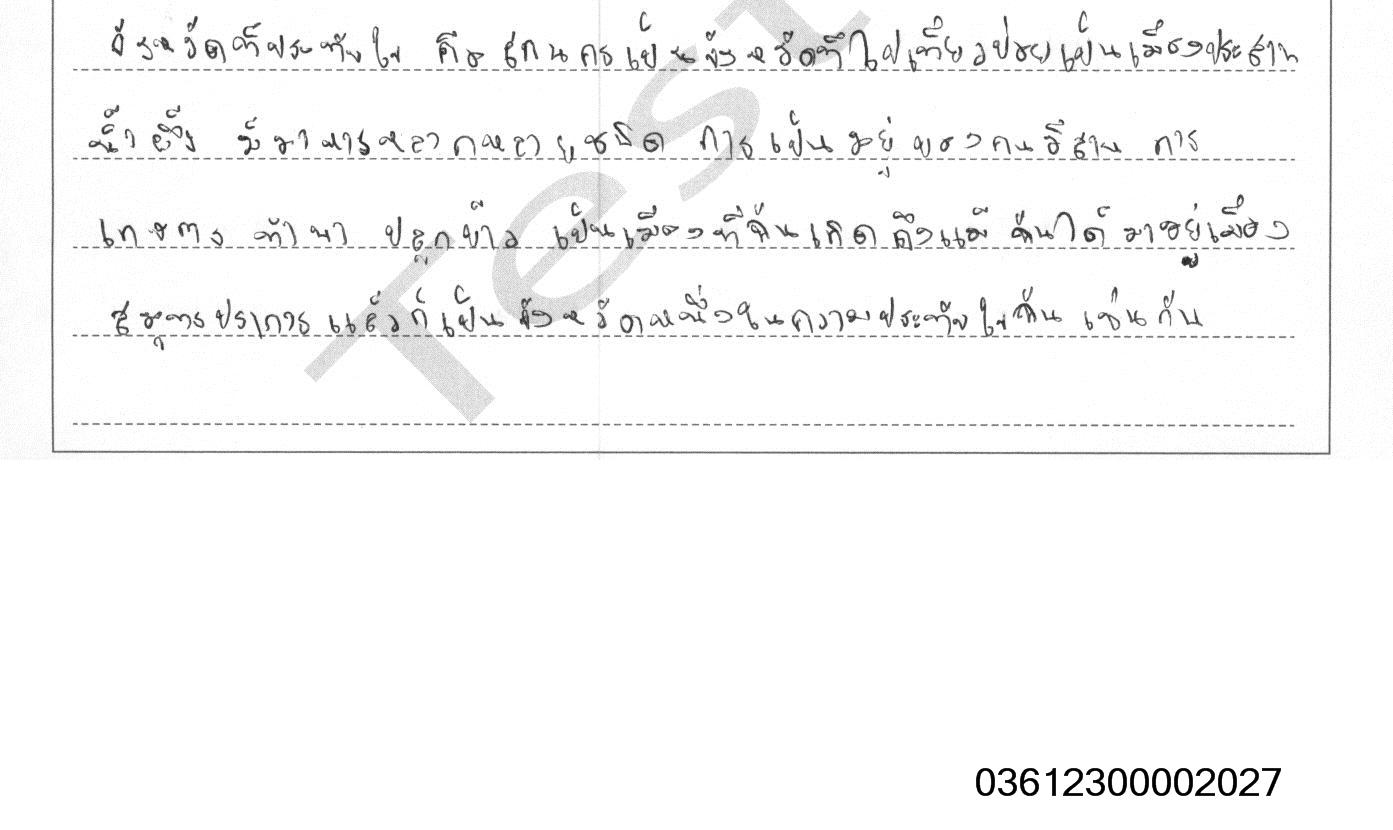 จังหวัดที่ประทับใจ คือ สกนครเป็นจังหวัดที่ไปเที่ยวบ่อยเป็นเมืองประสาน
น้ำผึ้ง มีอาหารหลากหลายชนิด การเป็นอยู่ของคนอีสาน การ
เกษตร ทำนา ปลูกข้าว เป็นเมืองที่ฉันเกิดถึงแม้ ฉันได้มาอยู่เมือง
สมุทรปราการแล้วก็เป็นจังหวัดหนึ่งในความประทับใจฉัน เช่นกัน
Test
03612300002027